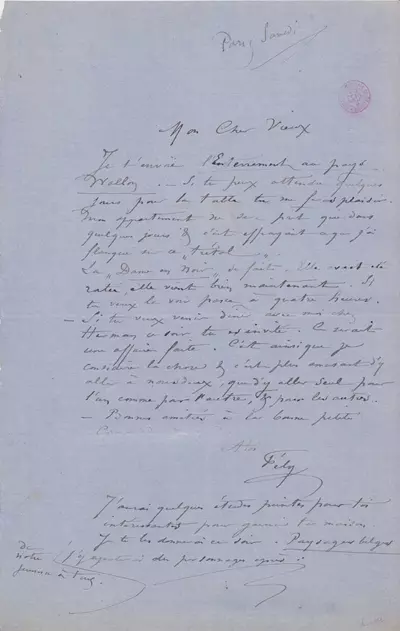 Paris, Samedi
Mon Cher Vieux
Je t'envoie l'Enterrement au pays
Wallon. — Si tu peux attendre quelques
jours pour la table tu me feras plaisir
Mon appartement ne sera prêt que dans
quelques jours & c'est effrayant ce que j'ai
flanqué sur ce „tréteau".
La „Dame en Noir" se fait. Elle avait été
ratée, elle vient bien maintenant. Si
tu veux la voir passe à quatre heures.
— Si tu veux venir dîner avec moi chez
Herman ce soir tu es invité. Ce serait
une affaire faite. C'est ainsi que je
considère la chose & c'est plus amusant d'y
aller à nous deux, que d'y aller seul pour
l'un comme pour l'autre, & pour les autres.
— Bonnes amitiés à la bonne petite
à toi
Fély
J'aurai quelques études peintes pour toi
intéressantes pour garnir ta maison.
Je te les donnerai ce soir. Paysages belges
de
notre
jeunesse à tous
j'y ajouterai des personnages après :